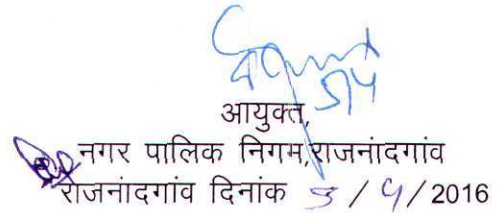 5/4
आयुक्त,
नगर पालिक निगम,राजनांदगांव
राजनांदगांव दिनांक 5 / 4 / 2016